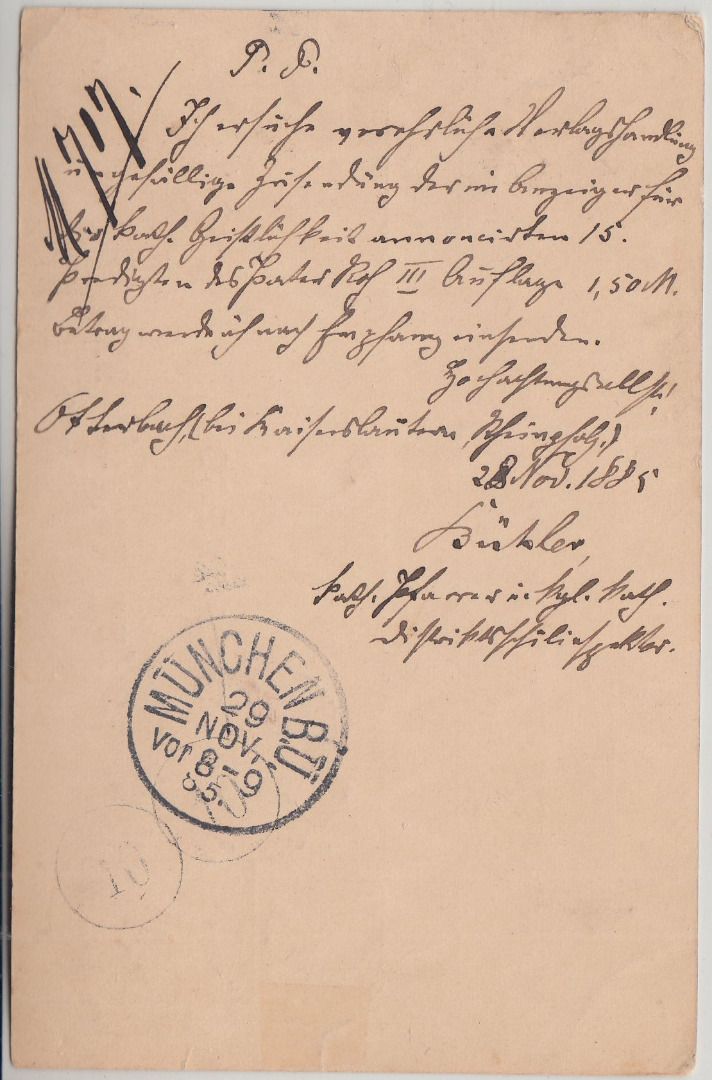 P. P.
1717.
Ich ersuche verehrliche Verlagshandlung
um gefällige Zusendung der im Anzeiger für
die kath. Geistlichkeit annoncirten 15.
Predigten des Pater Roh III Auflage 1,50 M.
Betrag werde ich nach Empfang einsenden.
Hochachtungsvollst!
Otterbach, (bei Kaiserslautern, Rheinpfalz,)
28 Nov. 1885
kath. Pfarrer u. kgl. kath.
Distriktsschulinspektor.
MÜNCHEN B.Ü
29
NOV.
vor 8-9
85.
10
10